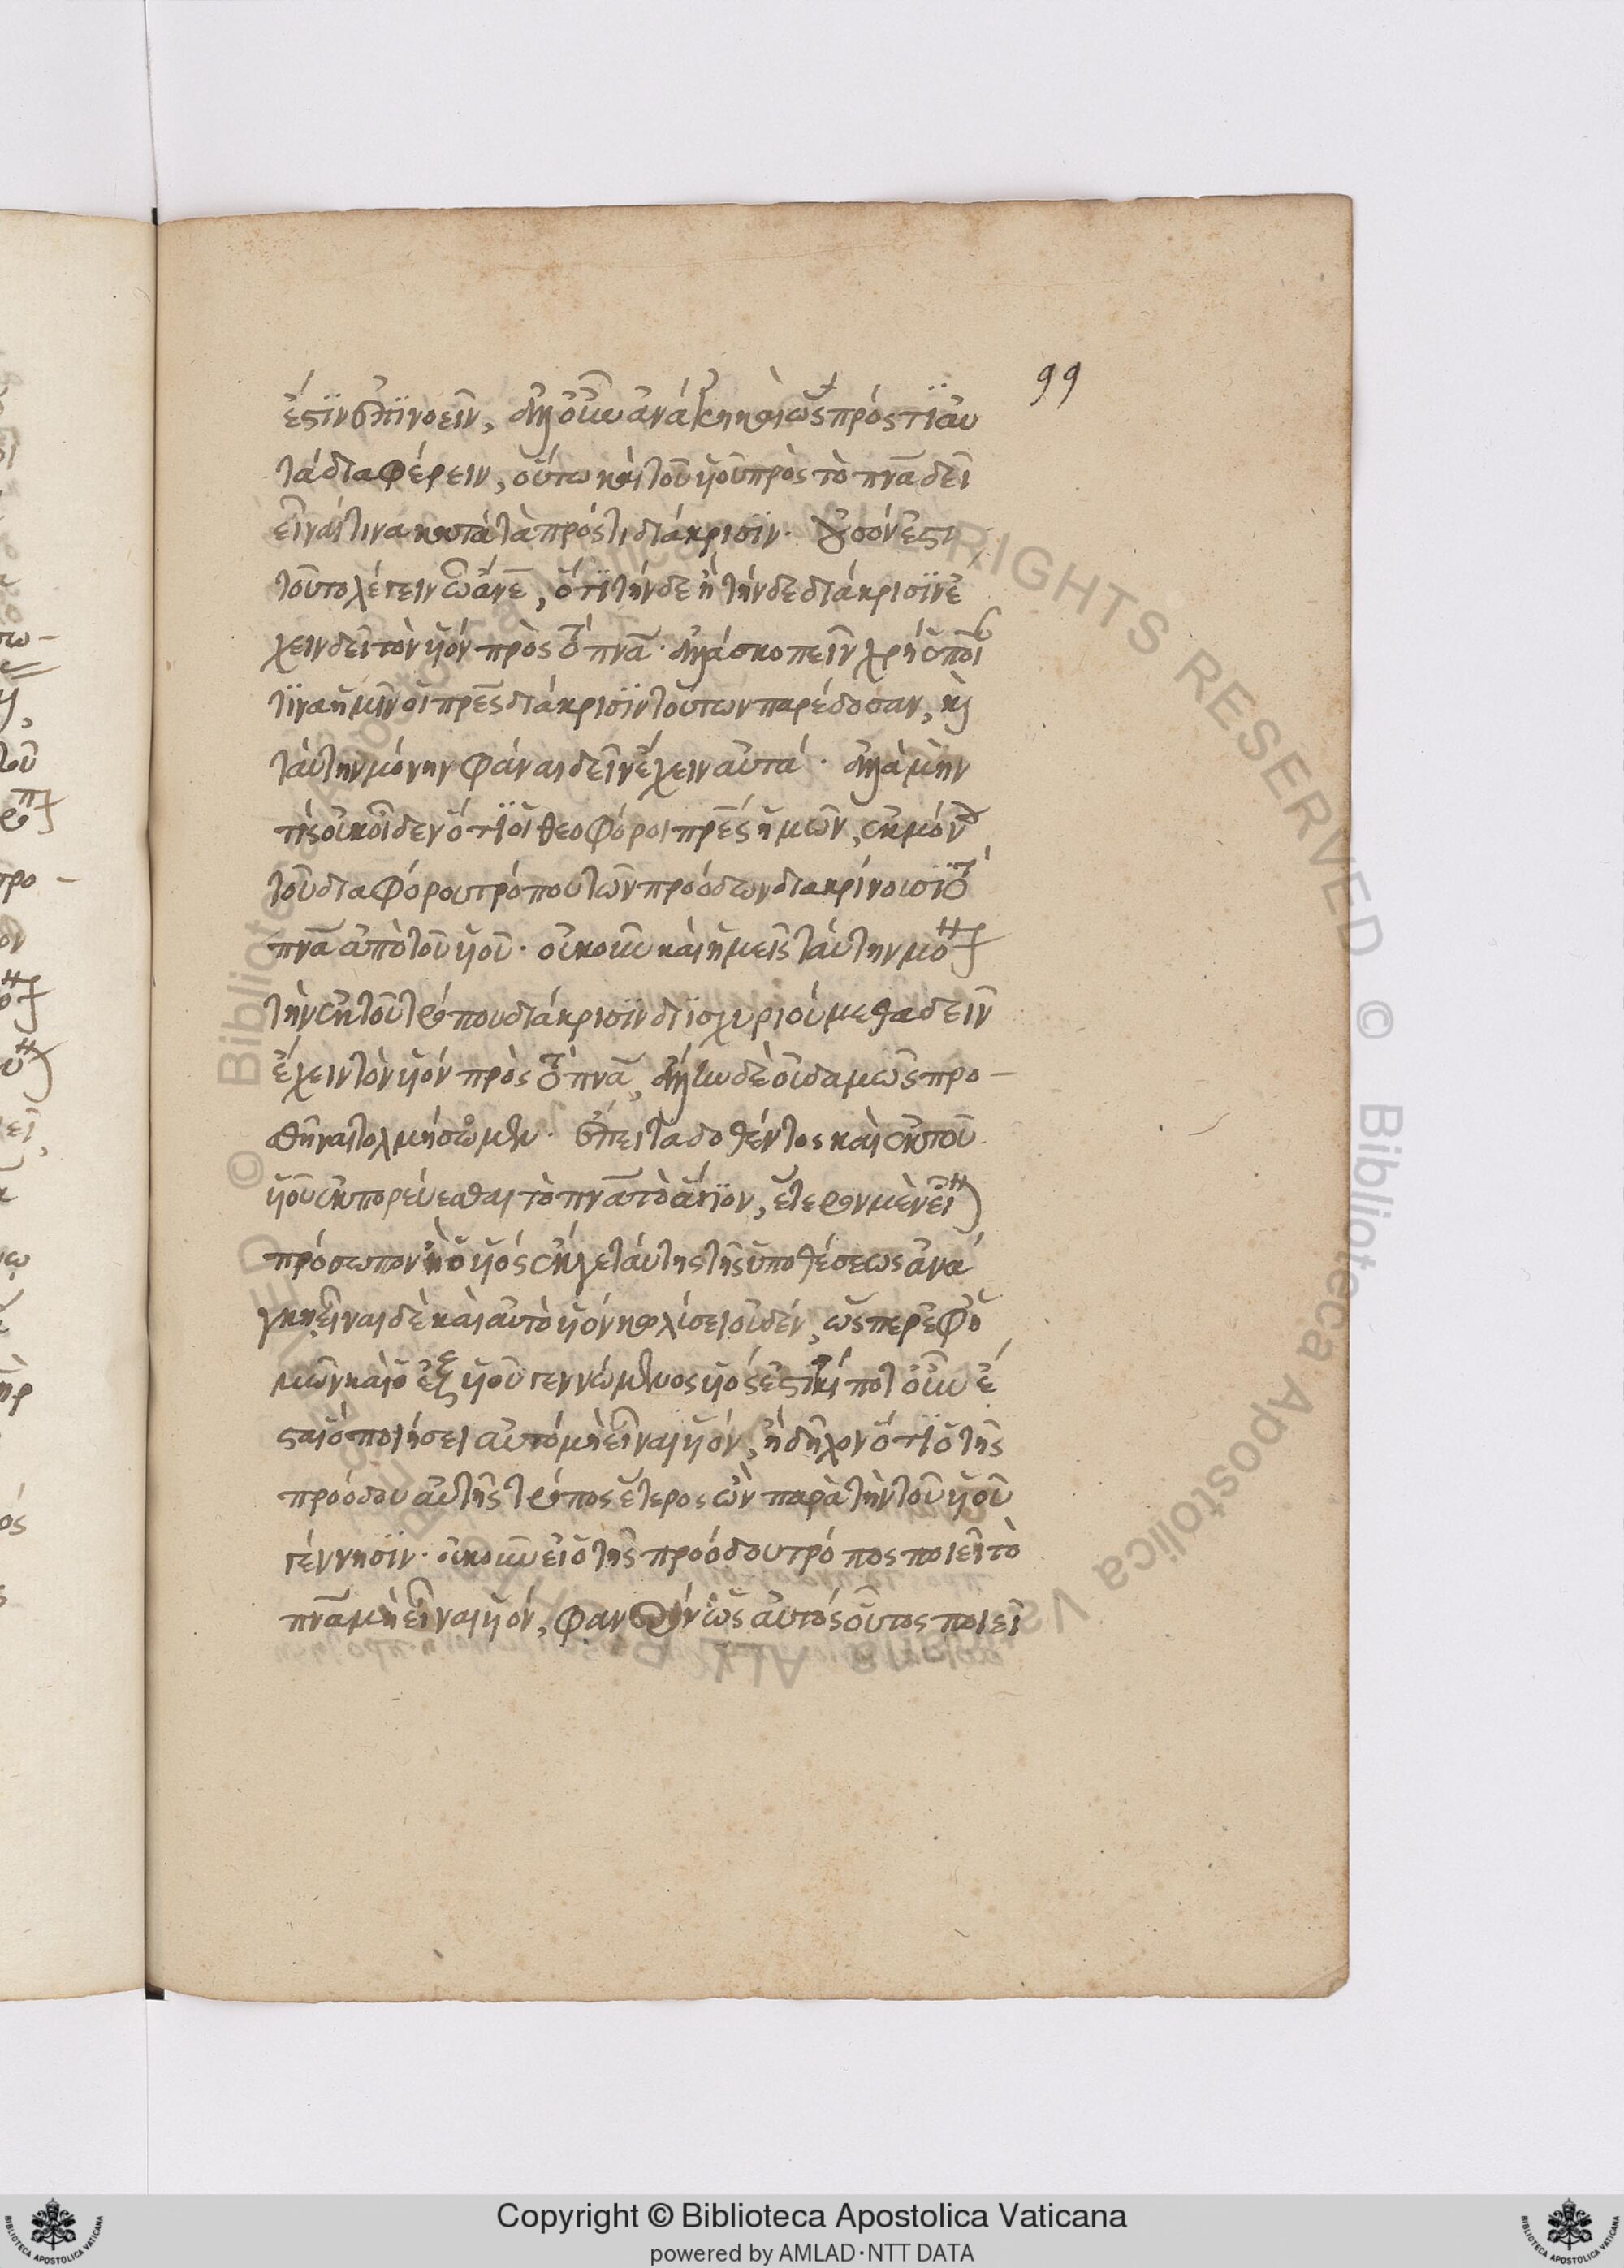 99
ἔστιν ἐπινοεῖν, ἀλλ' οὖν ἀνάγκη πρός τι αὐ
τὰ διαφέρειν, οὕτω καὶ τοῦ υἱοῦ πρὸς τὸ πνα δεῖ
εἶναί τινα κατὰ τὰ πρός τι διάκρισιν. ἔστι
τοῦτο λέγειν ὦ ἄνε, ὅτι τήνδε ἢ τήνδε διάκρισιν ἔ
χειν δεῖ τὸν υἱόν πρὸς τὸ πνα. ἀλλὰ σκοπεῖν χρὴ ὁποί
τινα ἡμῖν οἱ πρες διάκρισιν τούτων παρέδοσαν, καὶ
ταύτην μόνην φάναι δεῖν ἔχειν αὐτά. ἀλλὰ μὴν
τίς οὐκ οἶδεν ὅτι οἱ θεοφόροι πρες ἡμῶν, ἐκ μόνου
τοῦ διαφόρου τρόπου τῶν προόδων διακρίνουσι τὸ
πνα ἀπὸ τοῦ υἱοῦ. οὐκοῦν καὶ ἡμεῖς ταύτην μόνην
τὴν ἐκ τοῦ τρόπου διάκρισιν διϊσχυριούμεθα δεῖν
ἔχειν τὸν υἱόν πρὸς τὸ πνα, ἄλλην δὲ οὐδαμῶς προσ
θῆναι τολμήσωμεν. ἔπειτα δοθέντος καὶ ἐκ τοῦ
υἱοῦ ἐκπορεύεσθαι τὸ πνα τὸ ἅγιον, ἕτερον μὲν εἶναι
πρόσωπον ἢ ὁ υἱός ἐκ γε ταύτης τῆς ὑποθέσεως ἀνά
γκη εἶναι δὲ καὶ αὐτὸ υἱόν κωλύσει οὐδέν, ὥσπερ ἐφ' ἡ
μῶν καὶ ὁ ἐξ υἱοῦ γεννώμενος υἱός ἐστι τί ποτ' οὖν ἔ
σται ὃ ποιήσει αὐτό μὴ εἶναι υἱόν, ἢ δῆλον ὅτι ὁ τῆς
προόδου αὐτῆς τρόπος ἕτερος ὢν παρὰ τὴν τοῦ υἱοῦ
γέννησιν. οὐκοῦν εἰ ὁ τῆς προόδου τρόπος ποιεῖ τὸ
πνα μὴ εἶναι υἱόν, φανερόν ὡς αὐτός οὗτος ποιεῖ
Copyright © Biblioteca Apostolica Vaticana
powered by AMLAD·NTT DATA